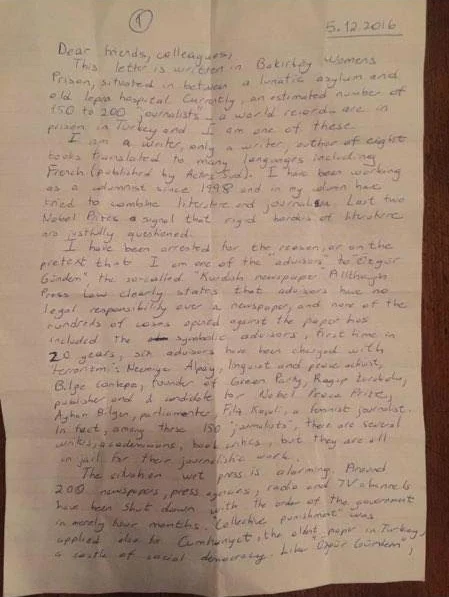 1
5.12.2016
Dear friends, colleagues,
This letter is written in Bakirköy Womens
Prison, situated in between a lunatic asylum and
old lepra hospital. Currently, an estimated number of
150 to 200 "journalists" a world record are in
prison in Turkey and I am one of these.
I am a writer, only a writer, author of eight
books translated to many languages including
French (published by Actes Sud). I have been working
as a columnist since 1998 and in my column have
tried to combine literature and journalism. Last two
Nobel Prizes a signal that rigid borders of literature
are justifully questioned.
I have been arrested for the reason, or on the
pretext that I am one of the "advisors" to "Özgür
Gündem" the so-called "Kurdish newspaper". Allthough
Press Law clearly states that advisors have no
legal responsibility over a newspaper, and none of the
hundreds of cases opened against the paper has
included the symbolic advisors, first time in
20 years, six advisors have been charged with
"terrorism": Necmiye Alpay, linguist and peace activist,
Bilge founder of Green Party, Ragıp Zarakolu,
publisher and a candidate for Nobel Peace Prize,
Ayhan Bilgen, parliamenter, Filiz a feminist journalist.
In fact, among these 150 "journalists", there are several
writers, academicians, book critics, but they are all
in jail for their journalistic work.
The situation wrt press is alarming. Around
200 newspapers, press agencies, radio and TV channels
have been shut down with the order of the government
in merely four months. "Collective punishment" was
applied also to Cumhuriyet, the oldest paper in Turkey,
a castle of social democracy. Like "Özgür Gündem",